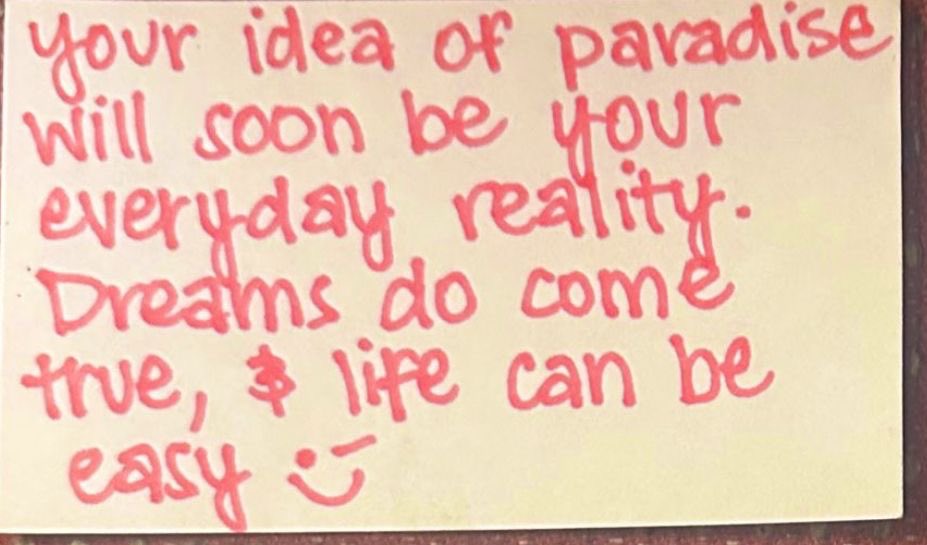 your idea of paradise
will soon be your
everyday reality.
Dreams do come
true, & life can be
easy